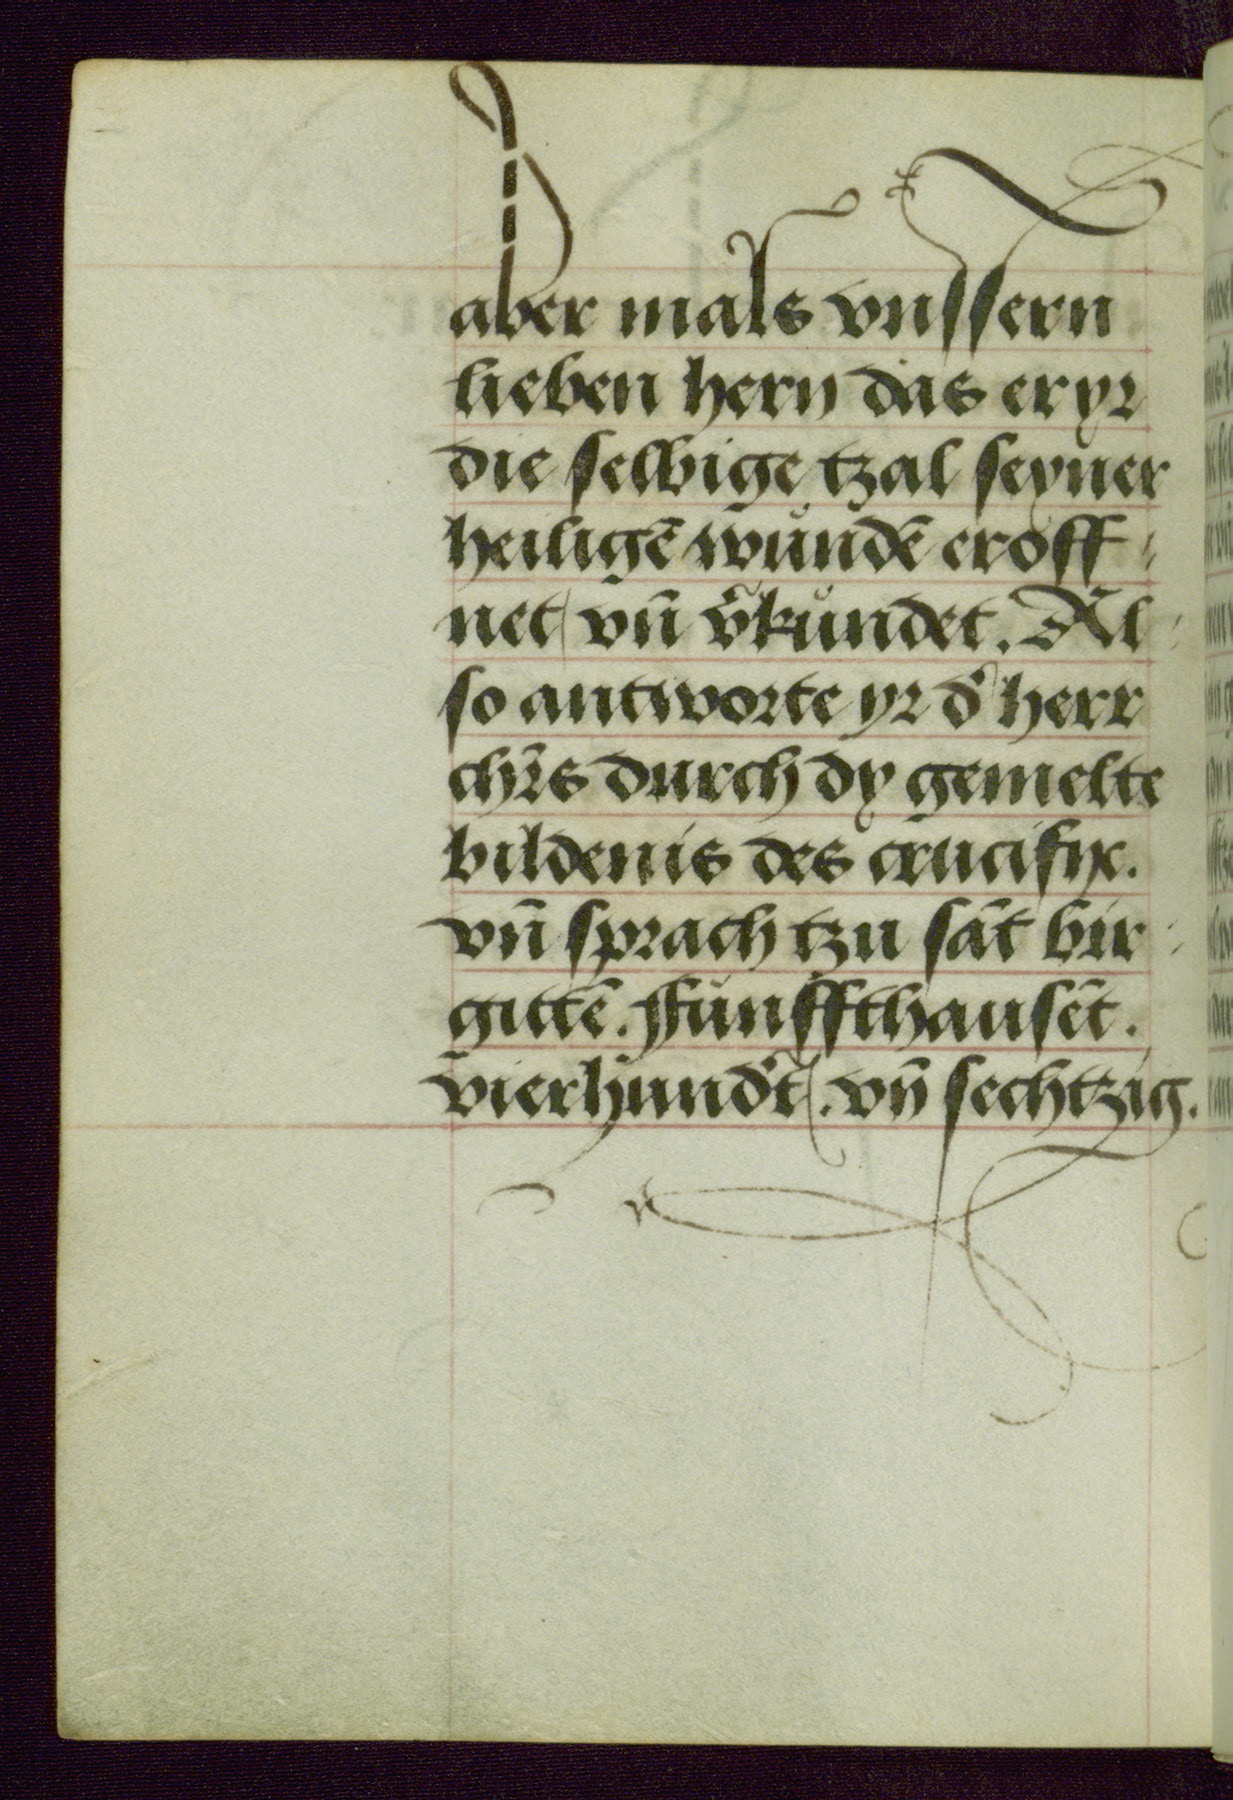 aber mals vnssern
lieben hern das er yr
die selbige tzal seyner
heiligē wůndē eroff-
net vn̄ v̄kůndet. Al-
so antworte yr d' herr
chr̄s durch dy gemelte
bildenis des crucifix.
vn̄ sprach tzu sāt bir-
gittē. Fůnffthausēt.
vierhund't. vn̄ sechtzig.